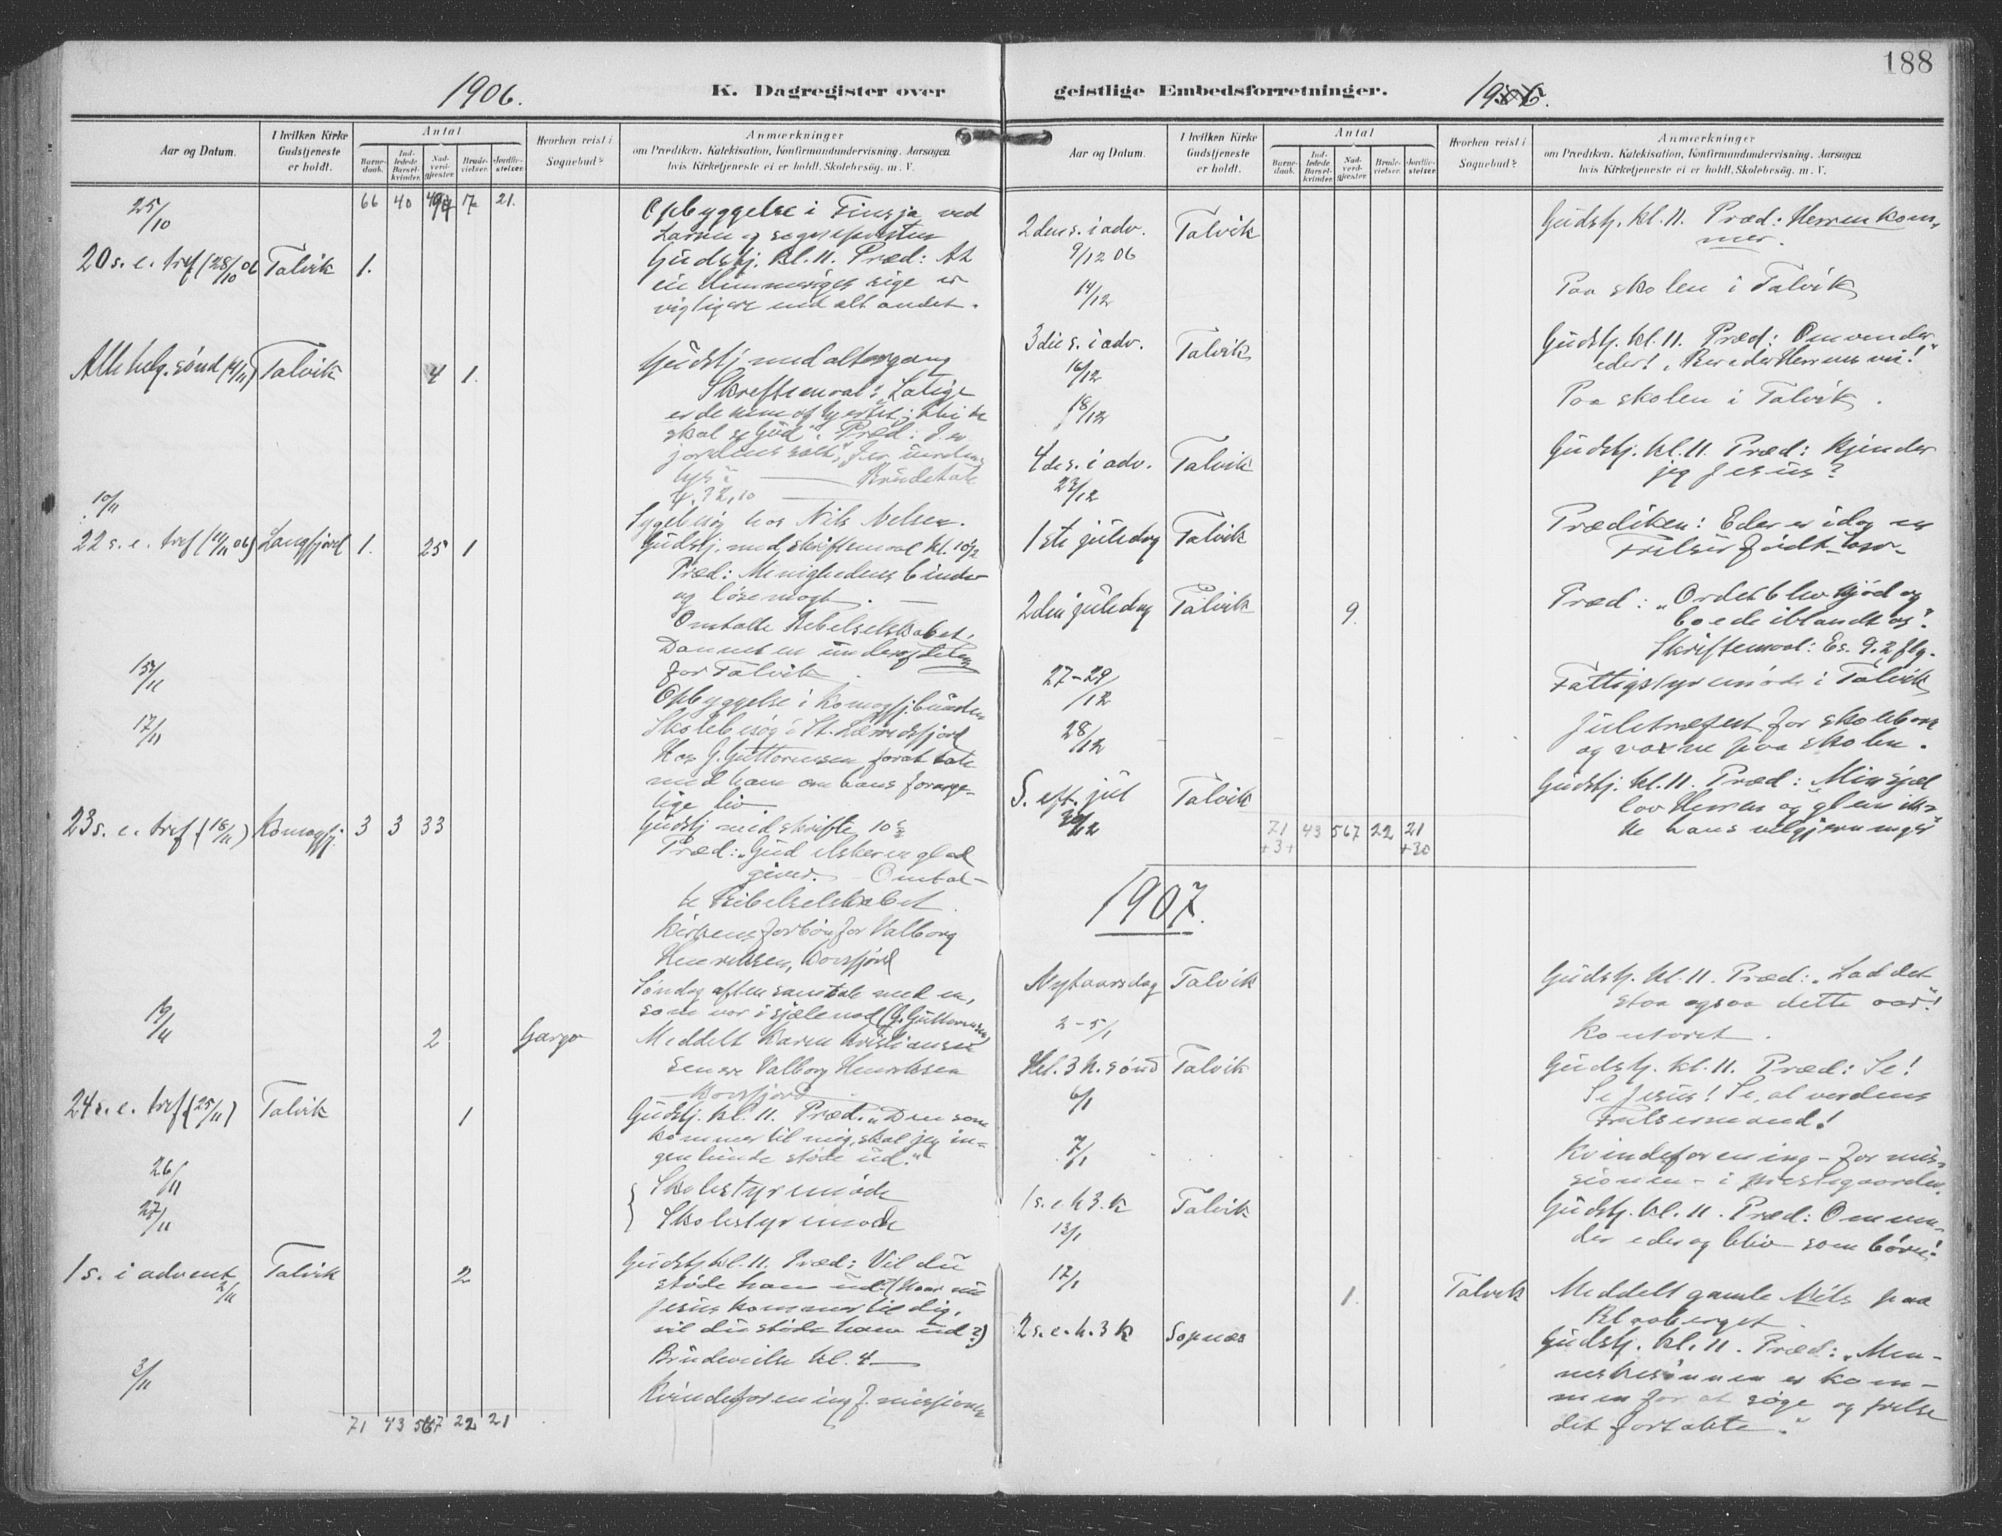 188
1906.
K. Dagregister over
geistlige Embedsforretninger.
Aar og Datum.
I hvilken Kirke Gudstjeneste er holdt.
Antal
Barne-daab.
Ind-ledede Barsel-kvinder.
Nad-verd-gjester.
Brude-vielser.
Jordfæ-stelser.
Hvorhen reist i Sognebud?
Anmærkninger
om Prædiken, Katekisation, Konfirmandundervisning, Aarsagen
hvis Kirketjeneste ei er holdt, Skolebesøg, m. V.
25/10 66 40 17 21. Opbyggelse i ved
20 s. e. tref (28/10 06 Talvik 1. Gudstj. kl. 11. Præd: At
Himmeriges rige er
vigtigere end alt andet.
Alle helg. sønd (4/11) Talvik 4 1. Gudstj med altergang
Skriftemaal: "Salige
er de rene af hjertet; thi de
skal se Gud". Præd: I er
jordens salt, I er verdens
lys" — Brudetale
10/11 Sygebesøg hos Nils Nelsen.
22 s. e. tref (11/11 06) Langfjord 1. 25 1 Gudstj. med skriftemaal kl. 10½
Præd: Menighedens binde
og løse magt. —
Omtalte Bibelselskabet.
Dannet en underafdeling
for Talvik.
15/11 Opbyggelse i Komagfj.
17/11 Skolebesøg i St. Lerresfjord
Hos G. Guttormsen forat tale
med ham om hans forarge-
lige liv.
23 s. e. tref (18/11) Komagfj. 3 3 33 Gudstj med skrifte 10½
Præd: "Gud elsker en glad
giver. — Omtal-
te Bibelselskabet.
Kirkens forbøn for Valborg
Henriksen, Korsfjord
Søndag aften samtale med en,
som var i sjælenød (G. Guttormsen)
19/11 2 Gargo Meddelt Karen Kristiansen
senere Valborg Henriksen
Korsfjord
24 s. e. tref (25/11) Talvik 1 Gudstj. kl. 11. Præd. "Den som
kommer til mig, skal jeg in-
genlunde støde ud."
26/11 Skolestyremøde
27/11 Skolestyremøde
1 s. i advent 2/11 Talvik 2 Gudstj kl. 11. Præd: Vil du
støde ham ud? (Naar nu
Jesus kommer til dig,
vil du støde ham ud?)
Brudevielse kl. 4 —
3/11 Kvindeforening f. missionen
71 43 567 22 21
Aar og Datum.
I hvilken Kirke Gudstjeneste er holdt.
Antal
Barne-daab.
Ind-ledede Barsel-kvinder.
Nad-verd-gjester.
Brude-vielser.
Jordfæ-stelser.
Hvorhen reist i Sognebud?
Anmærkninger
om Prædiken, Katekisation, Konfirmandundervisning, Aarsagen
hvis Kirketjeneste ei er holdt, Skolebesøg, m. V.
2den s. i adv. 9/12 06 Talvik Gudstj. kl. 11. Præd: Herren kom-
mer.
14/12 Paa skolen i Talvik
3die s. i adv. 16/12 Talvik Gudstj. kl. 11. Præd: Omvender
eder! "Bereder Herrens vei!"
18/12 Paa skolen i Talvik.
4de s. i adv. 23/12 Talvik Gudstj. kl. 11. Præd: Kjender
jeg Jesus?
1ste juledag Talvik Prædiken: Eder er idag en
Frelser født
2den juledag Talvik 9. Præd: "Ordet blev kjød og
boede iblandt os".
Skriftemaal: Es. 9.2 flg.
27-29/12 Fattigstyremøde i Talvik
28/12 Juletræfest for skolebørn
og voxne paa skolen.
S. eft. jul 30/12 Talvik Gudstj. kl. 11. Præd: Min sjæl
lov Herren og glem ik-
ke hans velgjerninger"
71 43 567 22 21
+3+ +30
1907.
Nytaarsdag Talvik Gudstj. kl. 11. Præd: "Lad det
staa ogsaa dette aar"!
2-5/1 Kontoret.
Hel. 3 K. sønd 6/1 Talvik Gudstj. kl. 11. Præd: Se!
Se Jesus! Se, al verdens
Frelsermand!
7/1 Kvindeforening – for mis-
sionen – i prestegaarden.
1 s. e. h. 3. k 13/1 Talvik Gudstj. kl. 11. Præd: Omven-
der eder og bliv som børn!
17/1 1. Talvik Meddelt gamle Nils paa
Klaaberget.
2 s. e. h. 3 k Sopnæs Gudstj. kl. 11. Præd: "Men-
neskesønnen er kom-
men for at søge og frelse
det fortabte."